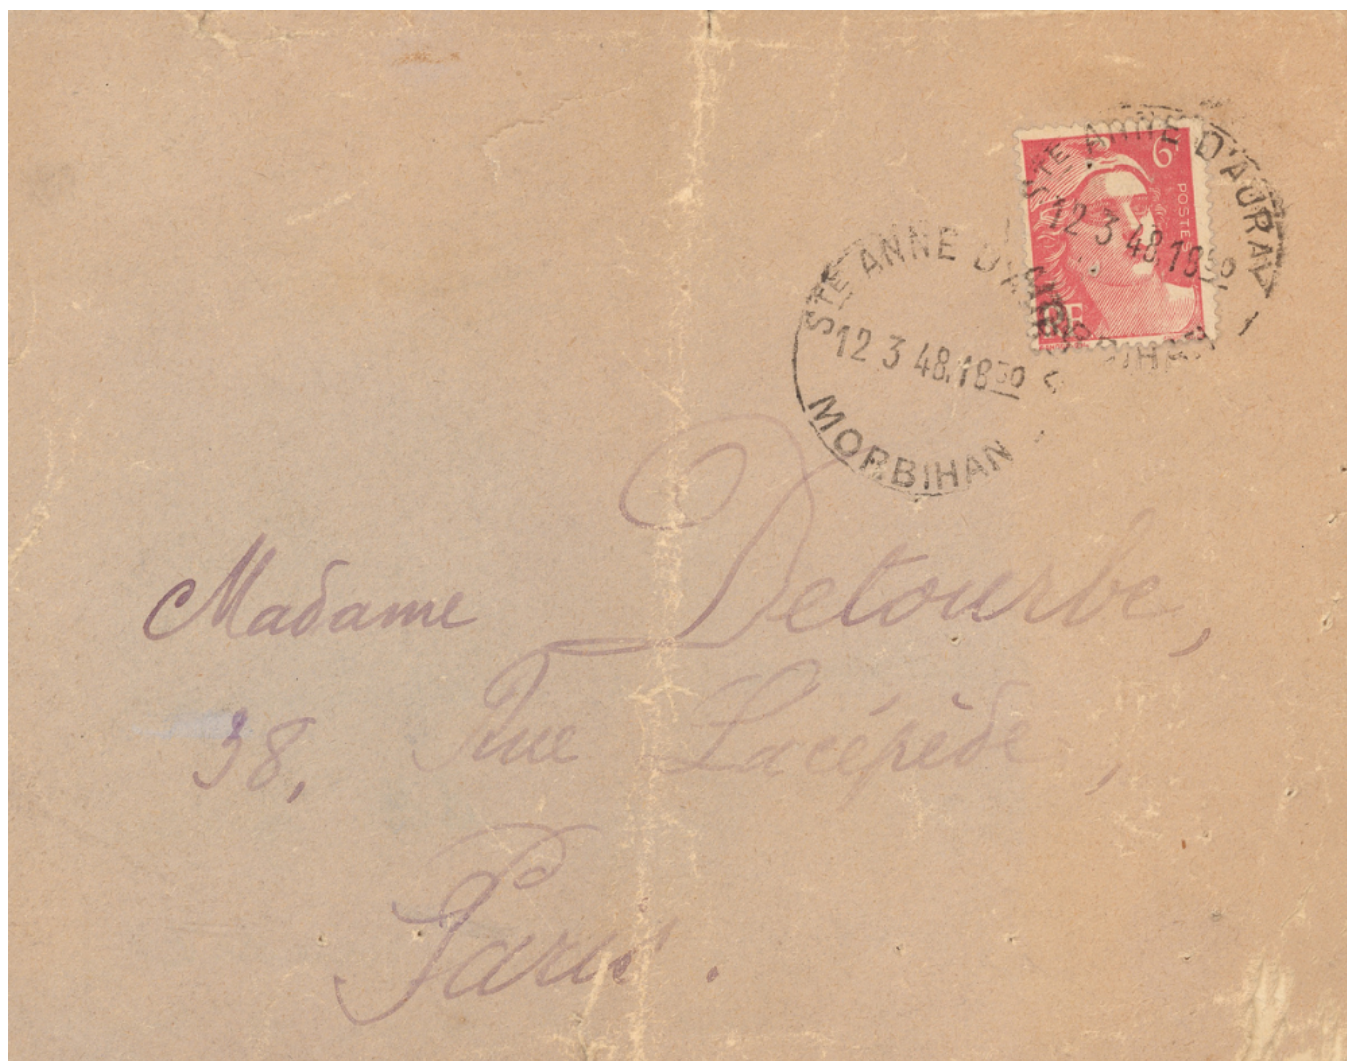 6
POSTES
RF
STE ANNE D'AURAY
12 3 48.18 30
MORBIHAN
STE ANNE D'AURAY
12 3 48.18 30
MORBIHAN
Madame Detourbe,
38, Rue Lacépède,
Paris.